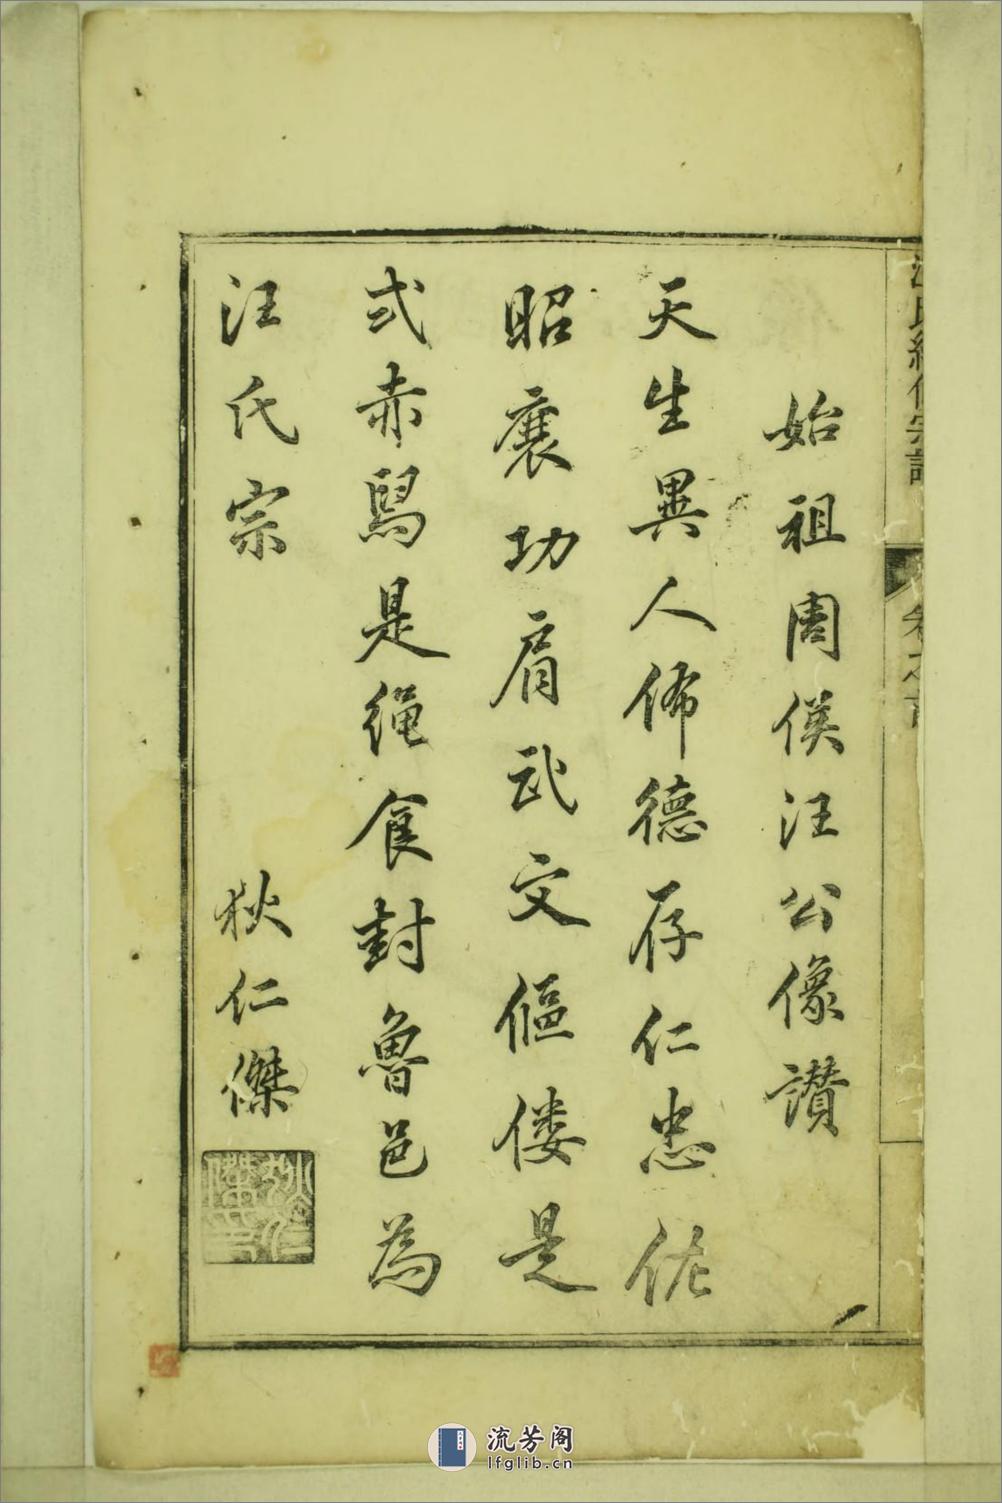 汪氏統宗譜
卷之首
始祖周侯汪公像讃
天生異人俙德存仁忠佐
昭襄功肩武文傴僂是
式赤舄是繩食封魯邑為
汪氏宗
狄仁傑
流芳阁
lfglib.cn